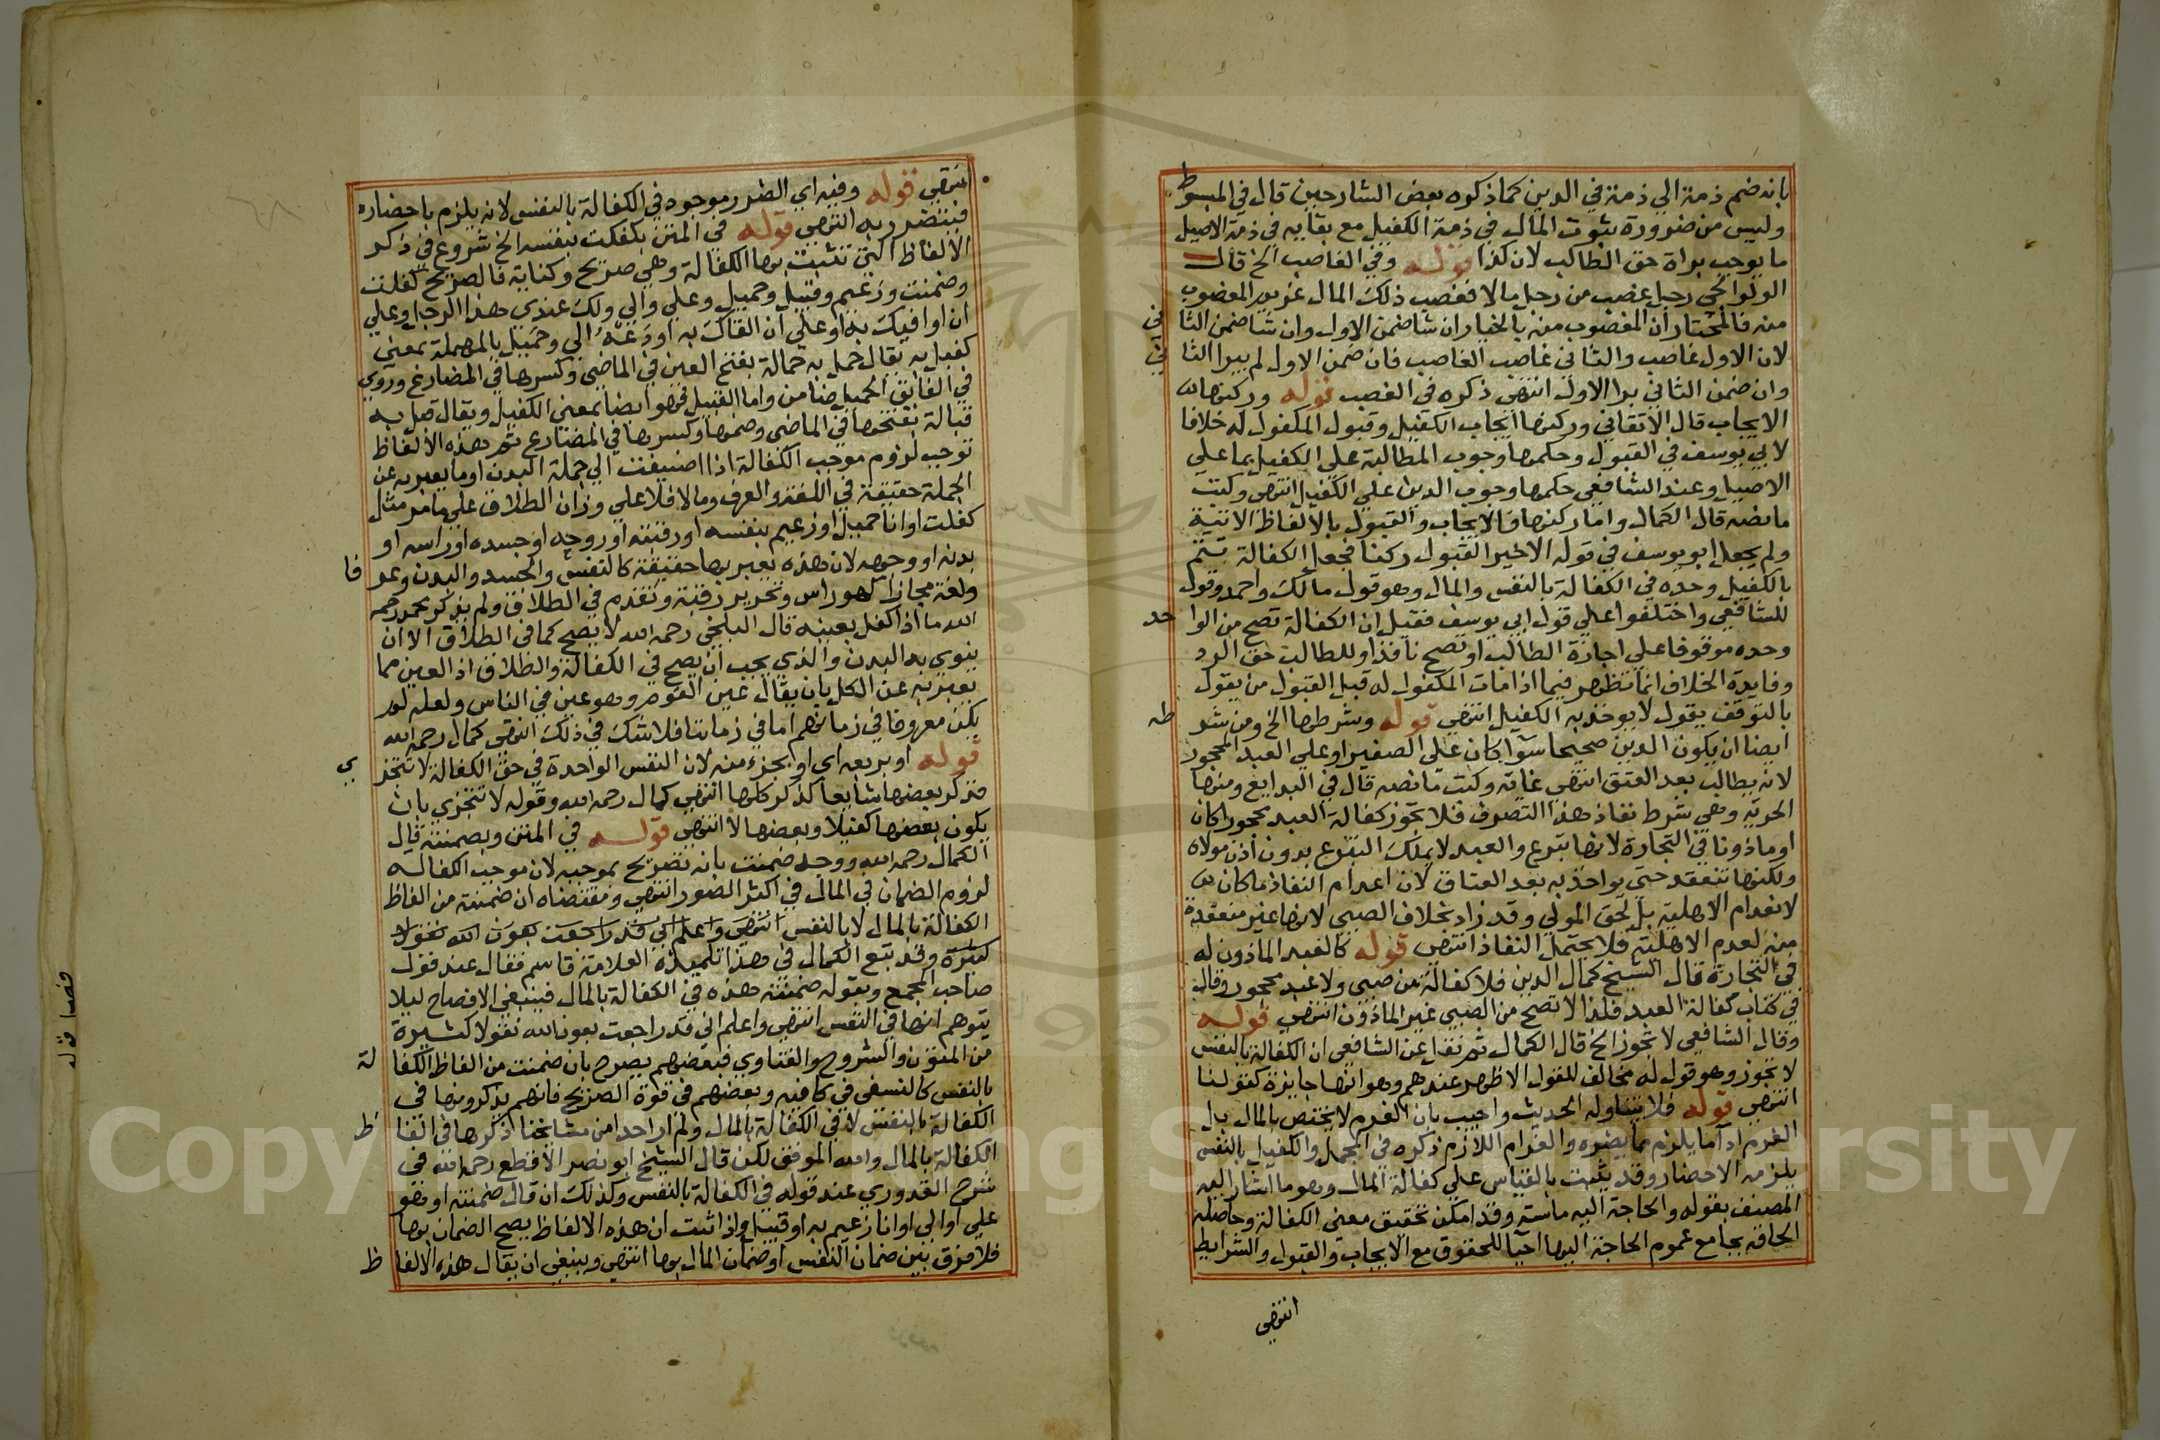 بانه ضم ذمة الي ذمة في الدين كما ذكره بعض الشارحين قال في المبسوط
وليس من ضرورة ثبوت المال في ذمة الكفيل مع بقايه في ذمة الاصيل
ما يوجب براة حق الطالب لان كذا قوله وفي الغاصب الخ قال
الولوالجي رجل غصب من رجل مالا فغصب ذلك المال غريم المغصوب
منه فالمختار ان المغصوب منه بالخيار ان شا ضمن الاول وان شا ضمن الثا ني
لان الاول غاصب والثاني غاصب الغاصب فان ضمن الاول لم يبرا الثا ني
وان ضمن الثاني برا الاول انتهى ذكره في الغصب قوله وركنها
الايجاب قال الاتقاني وركنها ايجاب الكفيل وقبول المكفول له خلافا
لابي يوسف في القبول وحكمها وجوب المطالبة على الكفيل بما على
الاصيل وعند الشافعي حكمها وجوب الدين علي الكفيل انتهى وكتب
ما نصه قال الكمال واما ركنها فالايجاب والقبول بالالفاظ الاتية
ولم يجعل ابو يوسف في قوله الاخير القبول ركنا فجعل الكفالة تتم
بالكفيل وحده في الكفالة بالنفس والمال وهو قول مالك واحمد وقول
للشافعي واختلفوا علي قول ابي يوسف فقيل ان الكفالة تصح من الوا حد
وحده موقوفا علي اجازة الطالب او تصح نافذا وللطالب حق الرد
وفايدة الخلاف انما تظهر فيما اذا مات المكفول له قبل القبول من يقول
بالتوقف يقول لا يوخذ به الكفيل انتهى قوله وشرطها الخ ومن شر طه
ايضا ان يكون الدين صحيحا سوآ كان علي الصغير او علي العبد المحجور
لانه يطالب بعد العتق انتهى غاية وكتب ما نصه قال في البدايع ومنها
الحرية وهي شرط نفاذ هذا التصرف فلا تجوز كفالة العبد محجورا كان
او ماذونا في التجارة لانها تبرع والعبد لا يملك التبرع بدون اذن مولاه
ولكنها تنعقد حتى يواخذ به بعد العتاق لان انعدام النفاذ ما كان
لانعدام الاهلية بل لحق المولي وقد زاد بخلاف الصبي لانها غير منعقدة
منه لعدم الاهلية فلا يحتمل النفاذ انتهى قوله كالعبد الماذون له
في التجارة قال الشيخ كمال الدين فلا كفالة من صبي ولا عبد محجور وقال
في كتاب كفالة العبد فلذا لا تصح من الصبي غير الماذون انتهى قوله
وقال الشافعي لا تجوز الخ قال الكمال ثم نقل عن الشافعي ان الكفالة بالنفس
لا تجوز وهو قول له مخالف للقول الاظهر عندهم وهو انها جايزة كقولنا
انتهى قوله فلا يتناوله الحديث واجيب بان الغرم لا يختص بالمال بل
الغرم ادآ ما يلزم مما يضره والغرام اللازم ذكره في المجمل والكفيل بالنفس
يلزمه الاحضار وقد يثبت بالقياس علي كفالة المال وهو ما اشار اليه
المصنف بقوله والحاجة اليه ماسة وقد امكن تحقيق معنى الكفالة وحاصله
الحاقه بجامع عموم الحاجة اليها احيآ للحقوق مع الايجاب والقبول والشرايط
انتهى
انتهى قوله وفيه اي الضرر موجود في الكفالة بالنفس لانه يلزم باحضاره
فيتضرر به انتهى قوله في المتن بكفلت بنفسه الخ شروع في ذكر
الالفاظ التي تثبت بها الكفالة وهي صريح وكناية فالصريح كفلت
وضمنت وزعيم وقبيل وحميل وعلي والي ولك عندي هذا الرجل وعلي
ان اوافيك به او علي ان القاك به او دعه الي وحميل بالمهملة بمعنى
كفيل به يقال حمل به حمالة بفتح العين في الماضي وكسرها في المضارع وروي
في الفايق الحميل ضامن واما القبيل فهو ايضا بمعنى الكفيل ويقال قبل به
قبالة بفتحها في الماضي وضمها وكسرها في المضارع ثم هذه الالفاظ
توجب لزوم موجب الكفالة اذا اضيفت الي جملة البدن او ما يعبر به عن
الجملة حقيقة في اللغة والعرف ومالا فلا علي وزان الطلاق علي ما مر مثل
كفلت او انا حميل او زعيم بنفسه او رقبته او روحه او جسده او راسه او
بدنه او وجهه لان هذه يعبر بها حقيقة كالنفس والجسد والبدن وعر فا
ولغة مجازا كهو راس وتحرير رقبة وتقدم في الطلاق ولم يذكر محمد رحمه
الله ما اذا كفل بعينه قال البلخي رحمه الله لا يصح كما في الطلاق الا ان
ينوي به البدن والذي يجب ان يصح في الكفالة والطلاق اذ العين مما
يعبر به عن الكل يان يقال عين القوم وهو عين في الناس ولعله لم
يكن معروفا في زمانهم اما في زماننا فلا شك في ذلك انتهى كمال رحمه الله
قوله او بربعه اي او بجزء منه لان النفس الواحدة في حق الكفالة لا تتجز ي
فذكر بعضها شايعا كذكر كلها انتهى كمال رحمه الله وقوله لا تتجزي بان
يكون بعضها كفيلا وبعضها لا انتهى قوله في المتن وبضمنته قال
الكمال رحمه الله ووجه ضمنت بانه تصريح بموجبه لان موجب الكفالة
لزوم الضمان في المال في اكثر الصور انتهى ومقتضاه ان ضمنته من الفاظ
الكفالة بالمال لا بالنفس انتهى واعلم اني قد راجعت بعون الله نقولا
كثيرة وقد تبع الكمال في هذا تلميذه العلامة قاسم فقال عند قول
صاحب المجمع وبقوله ضمنته هذه في الكفالة بالمال فينبغي الافصاح ليلا
يتوهم انها في النفس انتهى واعلم اني قد راجعت بعون الله نقولا كثيرة
من المتون والشروح والفتاوي فبعضهم يصرح بان ضمنت من الفاظ الكفا لة
بالنفس كالنسفي في كافيه وبعضهم في قوة الصريح فانهم يذكرونها في
الكفالة بالنفس لا في الكفالة بالمال ولم ار احدا من مشايخنا ذكرها في الفا ظ
الكفالة بالمال والله الموفق لكن قال الشيخ ابو نصر الاقطع رحمه الله في
شرح القدوري عند قوله في الكفالة بالنفس وكذلك ان قال ضمنته او هو
علي او الي او انا زعيم به او قبيل واذا ثبت ان هذه الالفاظ يصح الضمان بها
فلا فرق بين ضمان النفس او ضمان المال بها انتهى وينبغي ان يقال هذه الالفا ظ